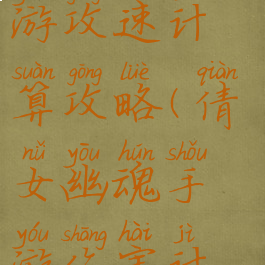 游攻速计
suàn gōng lüè qiàn
算攻略(倩
nǚ yōu hún shǒu
女幽魂手
yóu shāng hài jì